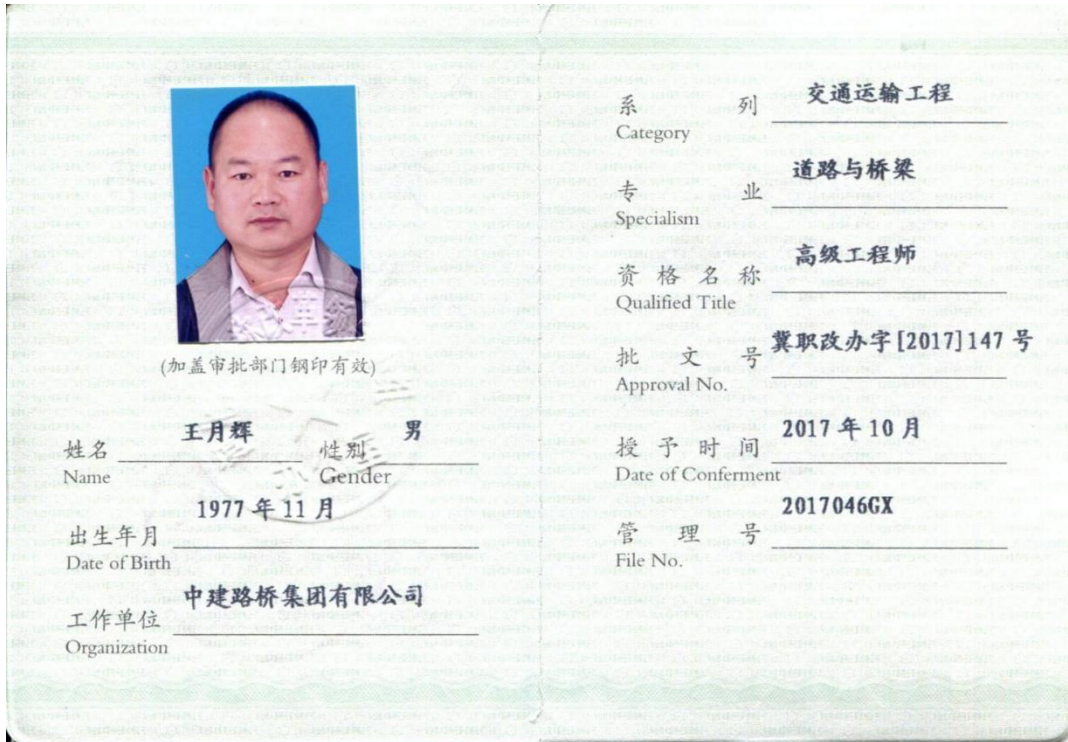 (加盖审批部门钢印有效)
姓名 王月辉 性别 男
Name Gender
出生年月 1977 年 11 月
Date of Birth
工作单位 中建路桥集团有限公司
Organization
系列 交通运输工程
Category
专业 道路与桥梁
Specialism
资格名称 高级工程师
Qualified Title
批文号 冀职改办字[2017]147 号
Approval No.
授予时间 2017 年 10 月
Date of Conferment
管理号 2017046GX
File No.